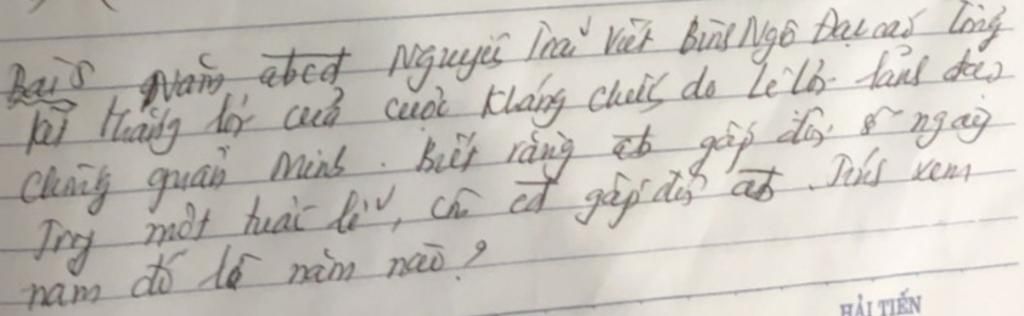 Bài 5 Năm abcd Nguyễn Trãi viết Bình Ngô Đại cáo tổng
kết thắng lợi của cuộc kháng chiến do Lê Lợi lãnh đạo
chống quân Minh. Biết rằng ab gấp đôi số ngày
Trg một tuần lễ, còn cd gấp đôi ab. Tính xem
năm đó là năm nào?
HẢI TIẾN